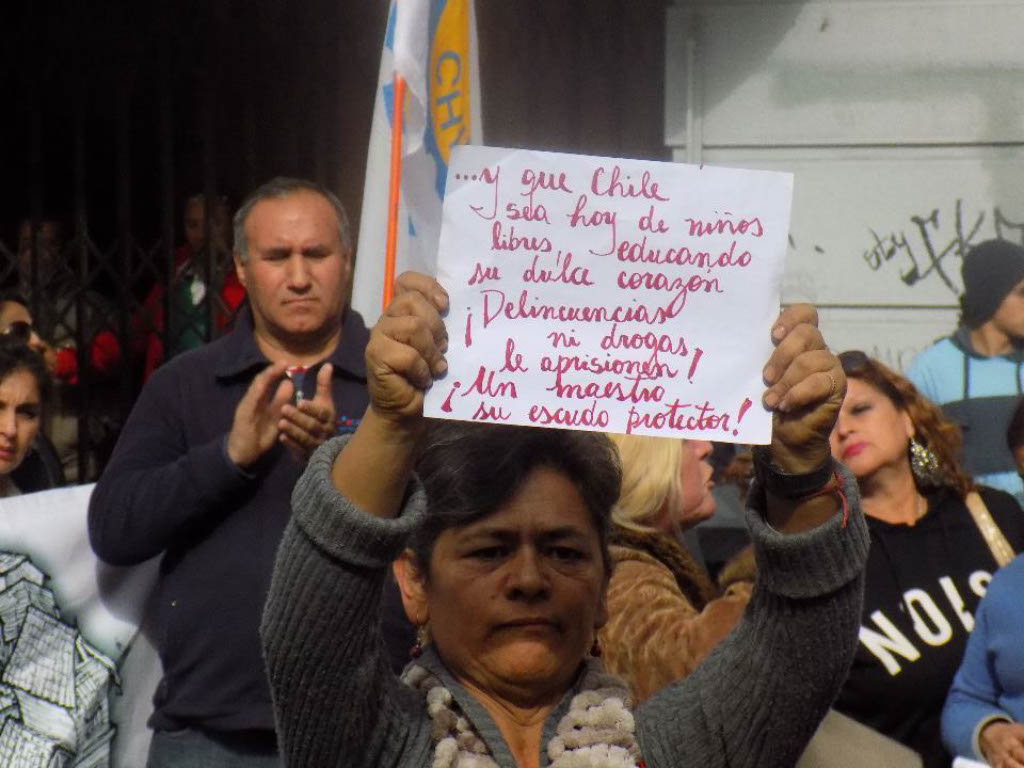 CHY
...y que Chile
sea hoy de niños
libres, educando
su dulce corazón
¡Delincuencias
ni drogas
le aprisionen!
¡Un maestro
su escudo protector!
NOIS